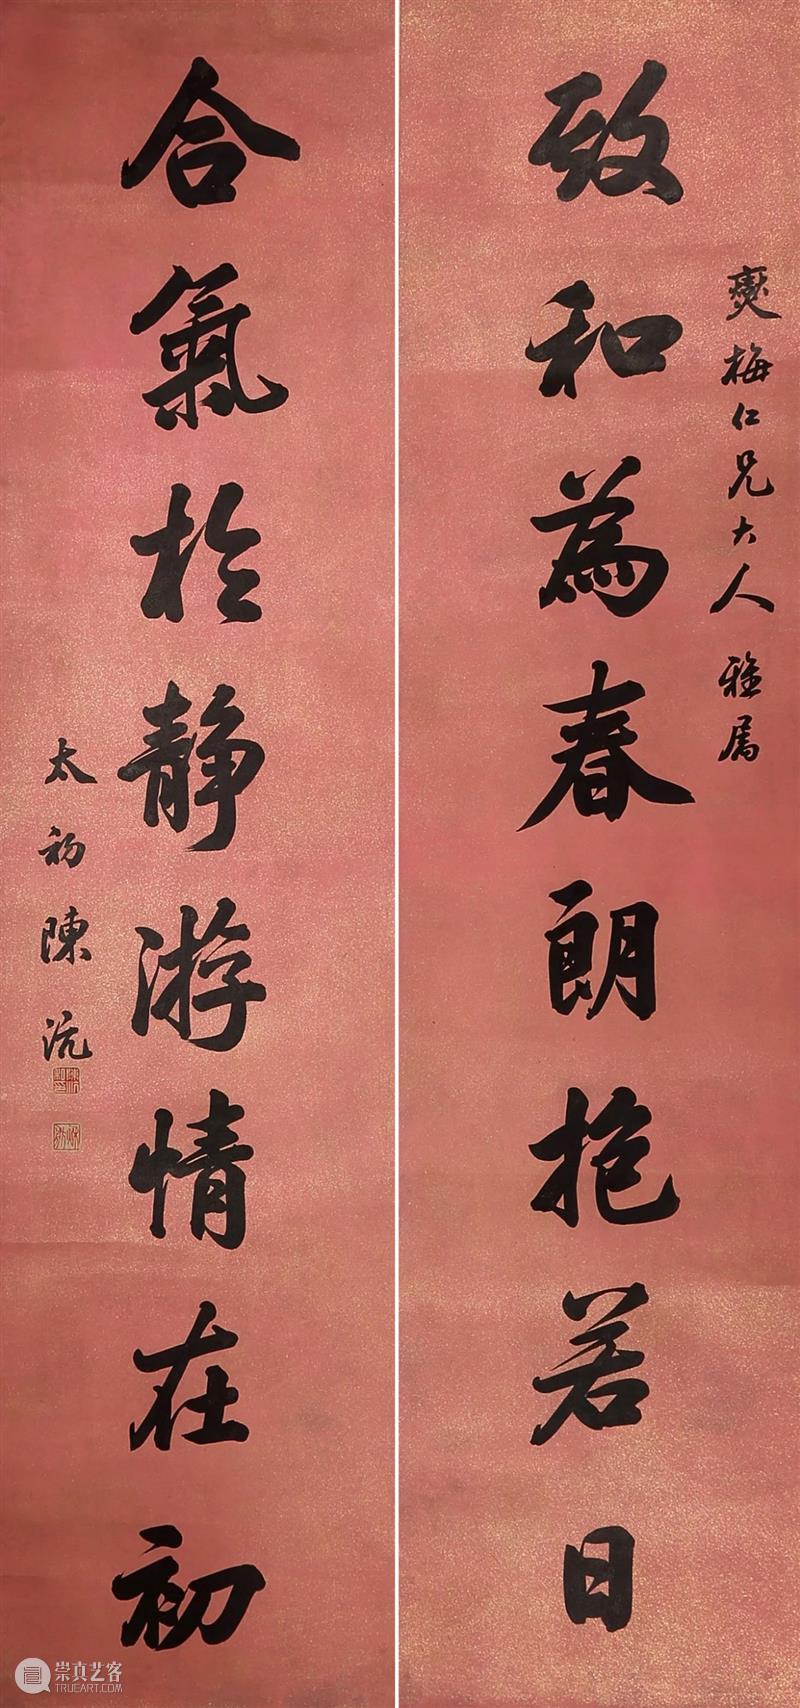 致和為春朗抱若日
梅仁兄大人雅属
合氣於静游情在初
太初陳沆
崇真艺客
TRUEART.COM